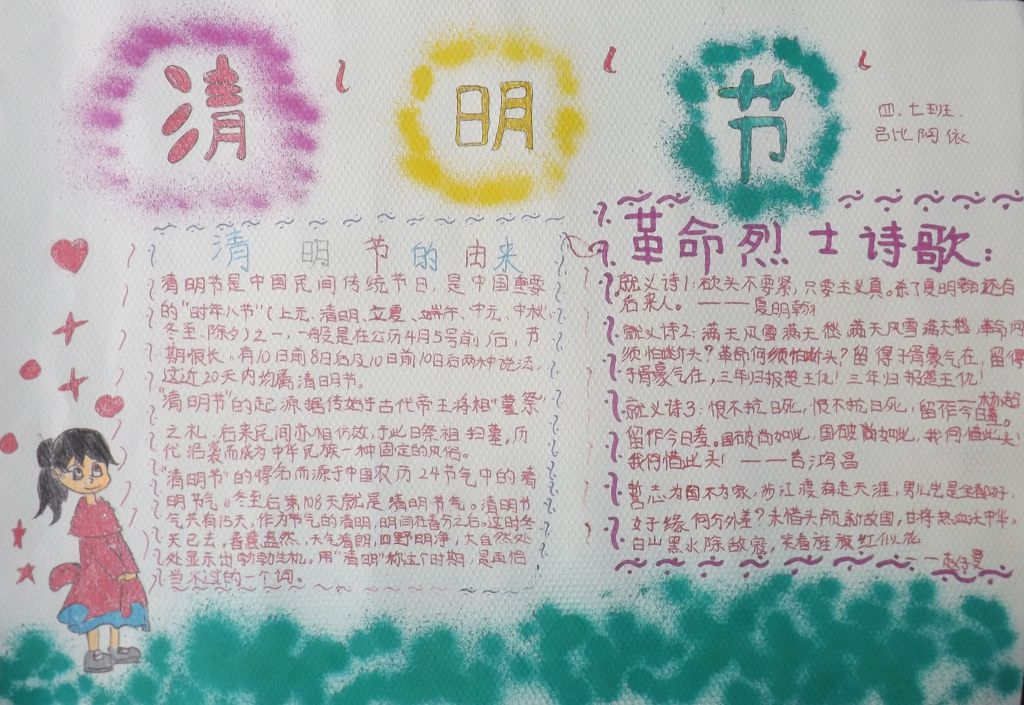 清明节
四.七班.
吕比阿依
清明节的由来
清明节是中国民间传统节日,是中国重要
的"时年八节"(上元、清明、立夏、端午、中元、中秋、
冬至、除夕)之一,一般是在公历4月5号前后,节
期很长,有10日前8日后及10日前10日后两种说法,
这近20天内均属清明节。
"清明节"的起源据传始于古代帝王将相"墓祭"
之礼,后来民间亦相仿效,于此日祭祖扫墓。历
代沿袭而成为中华民族一种固定的风俗。
"清明节"的得名而源于中国农历24节气中的清
明节气。冬至后第108天就是清明节气。清明节
气共有15天,作为节气的清明,时间在春分之后。这时冬
天已去,春意盎然,天气清朗,四野明净,大自然处
处显示出勃勃生机。用"清明"称这个时期,是再恰
当不过的一个词。
革命烈士诗歌:
就义诗1:砍头不要紧,只要主义真。杀了夏明翰还有
后来人。———夏明翰
就义诗2:满天风雪满天愁,满天风雪满天愁,革命何
须怕断头?革命何须怕断头?留得子胥豪气在,留得
子胥豪气在,三年归报楚王仇!三年归报楚王仇!
——杨超
就义诗3:恨不抗日死,恨不抗日死,留作今日羞。
留作今日羞。国破尚如此,国破尚如此,我何惜此头!
我何惜此头!———吉鸿昌
誓志为国不为家,涉江渡海走天涯,男儿岂是全都好,
女子缘何分外差?未惜头颅新故国,甘将热血沃中华。
白山黑水除敌寇,笑看旌旗红似花
——赵一曼